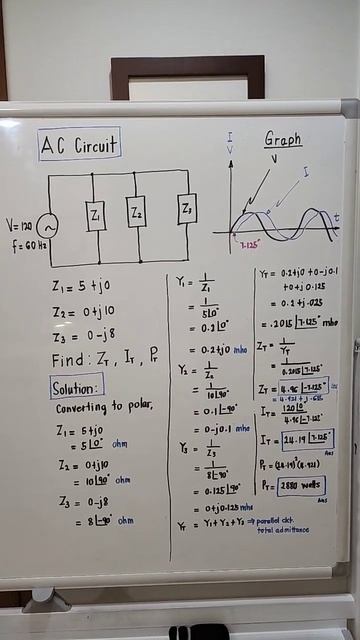 AC Circuit
V=120
f=60 Hz
~
Z1
Z2
Z3
Graph
I
V
V
I
t
7.125°
Z1 = 5 + j0
Z2 = 0 + j10
Z3 = 0 - j8
Find: ZT, IT, PT
Solution:
Converting to polar,
Z1 = 5 + j0
= 5∠0° ohm
Z2 = 0 + j10
= 10∠90° ohm
Z3 = 0 - j8
= 8∠-90° ohm
Y1 = 1/Z1
= 1/5∠0°
= 0.2∠0°
= 0.2 + j0 mho
Y2 = 1/Z2
= 1/10∠90°
= 0.1∠-90°
= 0 - j0.1 mho
Y3 = 1/Z3
= 1/8∠-90°
= 0.125∠90°
= 0 + j0.125 mho
YT = Y1 + Y2 + Y3 ⇒ parallel ckt.
total admittance
YT = 0.2 + j0 + 0 - j0.1
+ 0 + j0.125
= 0.2 + j.025
= .2015∠7.125° mho
ZT = 1/YT
= 1/0.2015∠7.125°
ZT = 4.96∠-7.125°
IT = 120∠0°/4.96∠-7.125°
IT = 24.19∠7.125°
Ans
PT = (24.19)²(4.921)
PT = 2880 watts
Ans